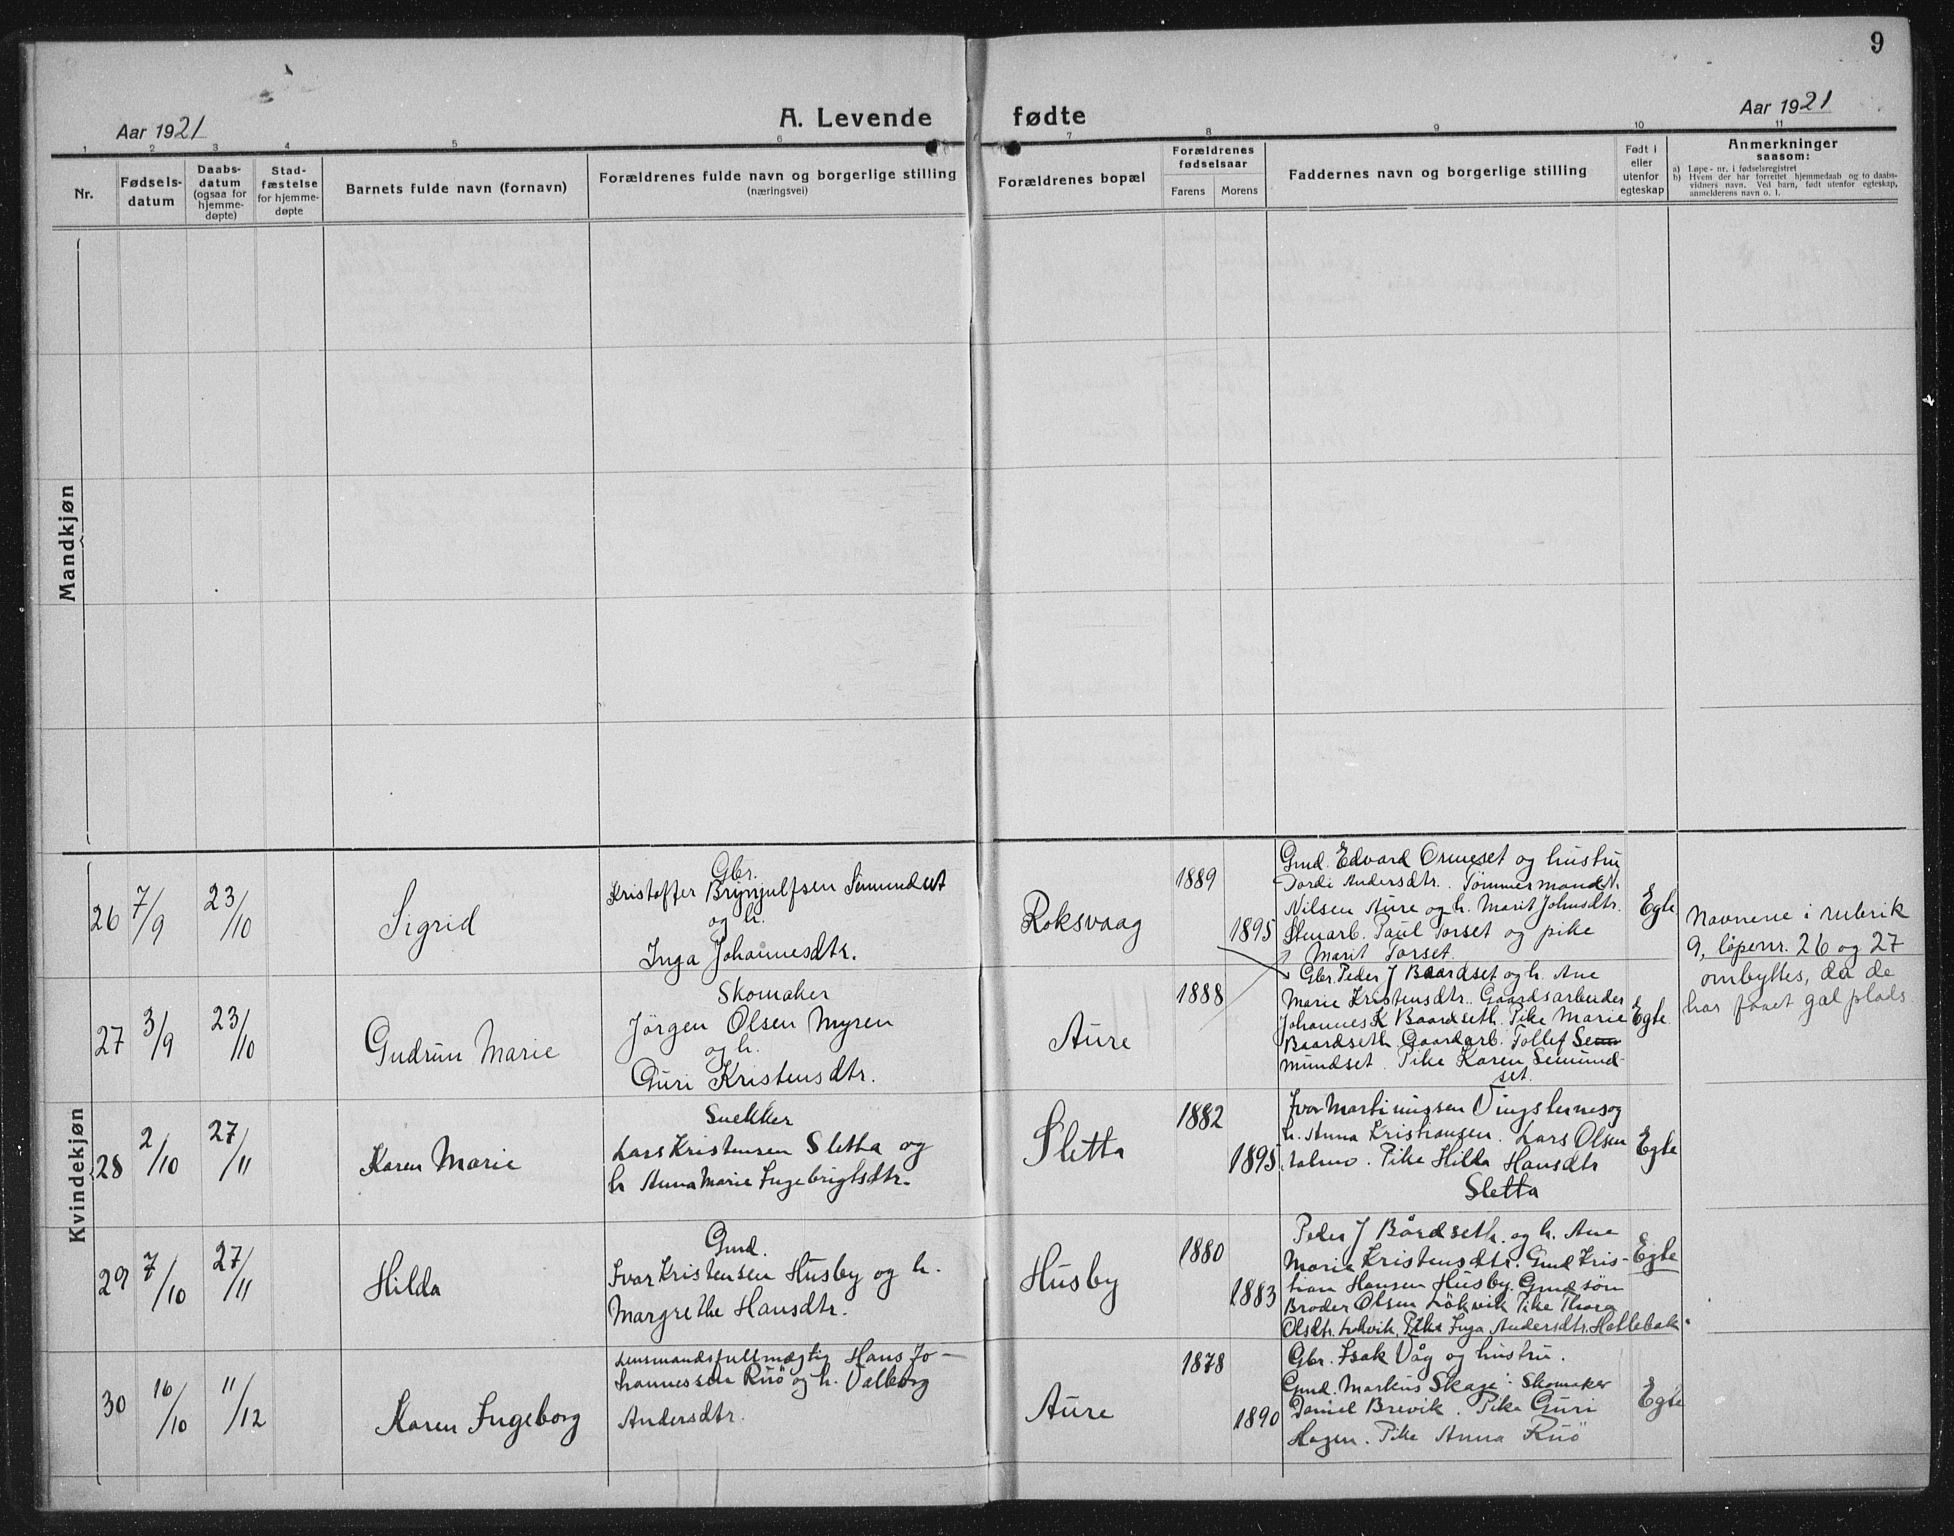 9
Aar 1921
A. Levende fødte
Aar 1921
1 2 3 4 5 6 7 8 9 10 11
Nr.
Fødsels-
datum
Daabs-
datum
(ogsaa for
hjemme-
døpte)
Stad-
fæstelse
for hjemme-
døpte
Barnets fulde navn (fornavn)
Forældrenes fulde navn og borgerlige stilling
(næringsvei)
Forældrenes bopæl
Forældrenes
fødselsaar
Farens
Morens
Faddernes navn og borgerlige stilling
Født i
eller
utenfor
egteskap
Anmerkninger
saasom:
a) Løpe-nr. i fødselsregistret
b) Hvem der har forrettet hjemmedaab og to daabs-
vidners navn. Ved barn, født utenfor egteskap,
anmelderens navn o. l.
Mandkjøn
Kvindekjøn
26
7/9
23/10
Sigrid
Gbr.
Kristoffer Brynjulfsen Semundset
og h.
Inga Johannesdtr.
Roksvaag
1889
1895
Gmd. Edvard Ormeset og hustru
Jordi Andersdtr. Tømmermand N.
Nilsen Aure og h. Marit Johnsdtr.
Stenarb. Paul Torset og pike
Marit Torset.
Egte
Navnene i rubrik
9, löpenr. 26 og 27
ombyttes, da de
har faaet gal plads
27
3/9
23/10
Gudrun Marie
Skomaker
Jörgen Olsen Myren
og h.
Guri Kristensdtr.
Aure
1888
Gbr. Peder J Baardset og h. Ane
Marie Kristensdtr. Gaardsarbeider
Johannes K Baardseth. Pike Marie
Baardseth. Gaardarb. Tollef Se
mundset. Pike Karen Semund-
set.
Egte
28
2/10
27/11
Karen Marie
Snekker
Lars Kristensen Sletta og
h. Anna Marie Ingebrigtsdtr.
Sletta
1882
1895
Ivar Martinussen Vingsternes og
h. Anna Kristiansen. Lars Olsen
. Pike Hilda Hansdtr
Sletta
Egte
29
7/10
27/11
Hilda
Gmd.
Ivar Kristensen Husby og h.
Margrethe Hansdtr.
Husby
1880
1883
Peder J Bårdseth. og h. Ane
Marie Kristensdtr. Gmd Kris-
tian Hansen Husby. Gmdsøn
Broder Olsen Lökvik Pike Thora
Olsdtr. Lökvik. Pike Inga Andersdtr. Hellebak.
Egte
30
16/10
11/12
Karen Ingeborg
Lensmandsfullmægtig Hans Jo-
hannessen Ruö og h. Valborg
Andersdtr.
Aure
1878
1890
Gbr. Isak Våg og hustru.
Gmd. Markus Skage. Skomaker
Daniel Brevik. Pike Guri
Hagen. Pike Anna Ruö
Egte